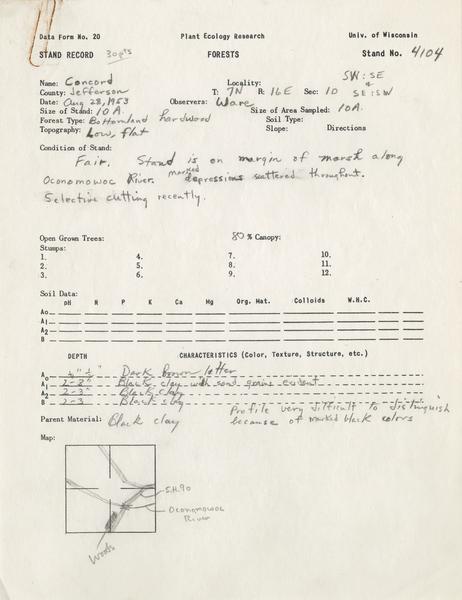 Data Form No. 20 Plant Ecology Research Univ. of Wisconsin
STAND RECORD 30 pts FORESTS Stand No. 4104
Name: Concord Locality: SW:SE
County: Jefferson T: 7N R: 16E Sec: 10 & SE:SW
Date: Aug 28, 1953 Observers: Ware
Size of Stand: 10 A. Size of Area Sampled: 10A.
Forest Type: Bottomland hardwood Soil Type:
Topography: Low, flat Slope: Directions
Condition of Stand:
Fair. Stand is on margin of marsh along
Oconomowoc River. marked depressions scattered throughout.
Selective cutting recently.
Open Grown Trees: 80 % Canopy:
Stumps:
1. 4. 7. 10.
2. 5. 8. 11.
3. 6. 9. 12.
Soil Data:
pH N P K Ca Mg Org. Mat. Colloids W.H.C.
Ao
A1
A2
B
DEPTH CHARACTERISTICS (Color, Texture, Structure, etc.)
Ao Dark Brown litter
A1 2-2" Black clay with sand grains evident
A2 2-3" Black clay
B 2-3 Black clay
Profile very difficult to distinguish
because of marked black colors
Parent Material: Black clay
Map:
S.H. 90
Oconomowoc
River
Woods